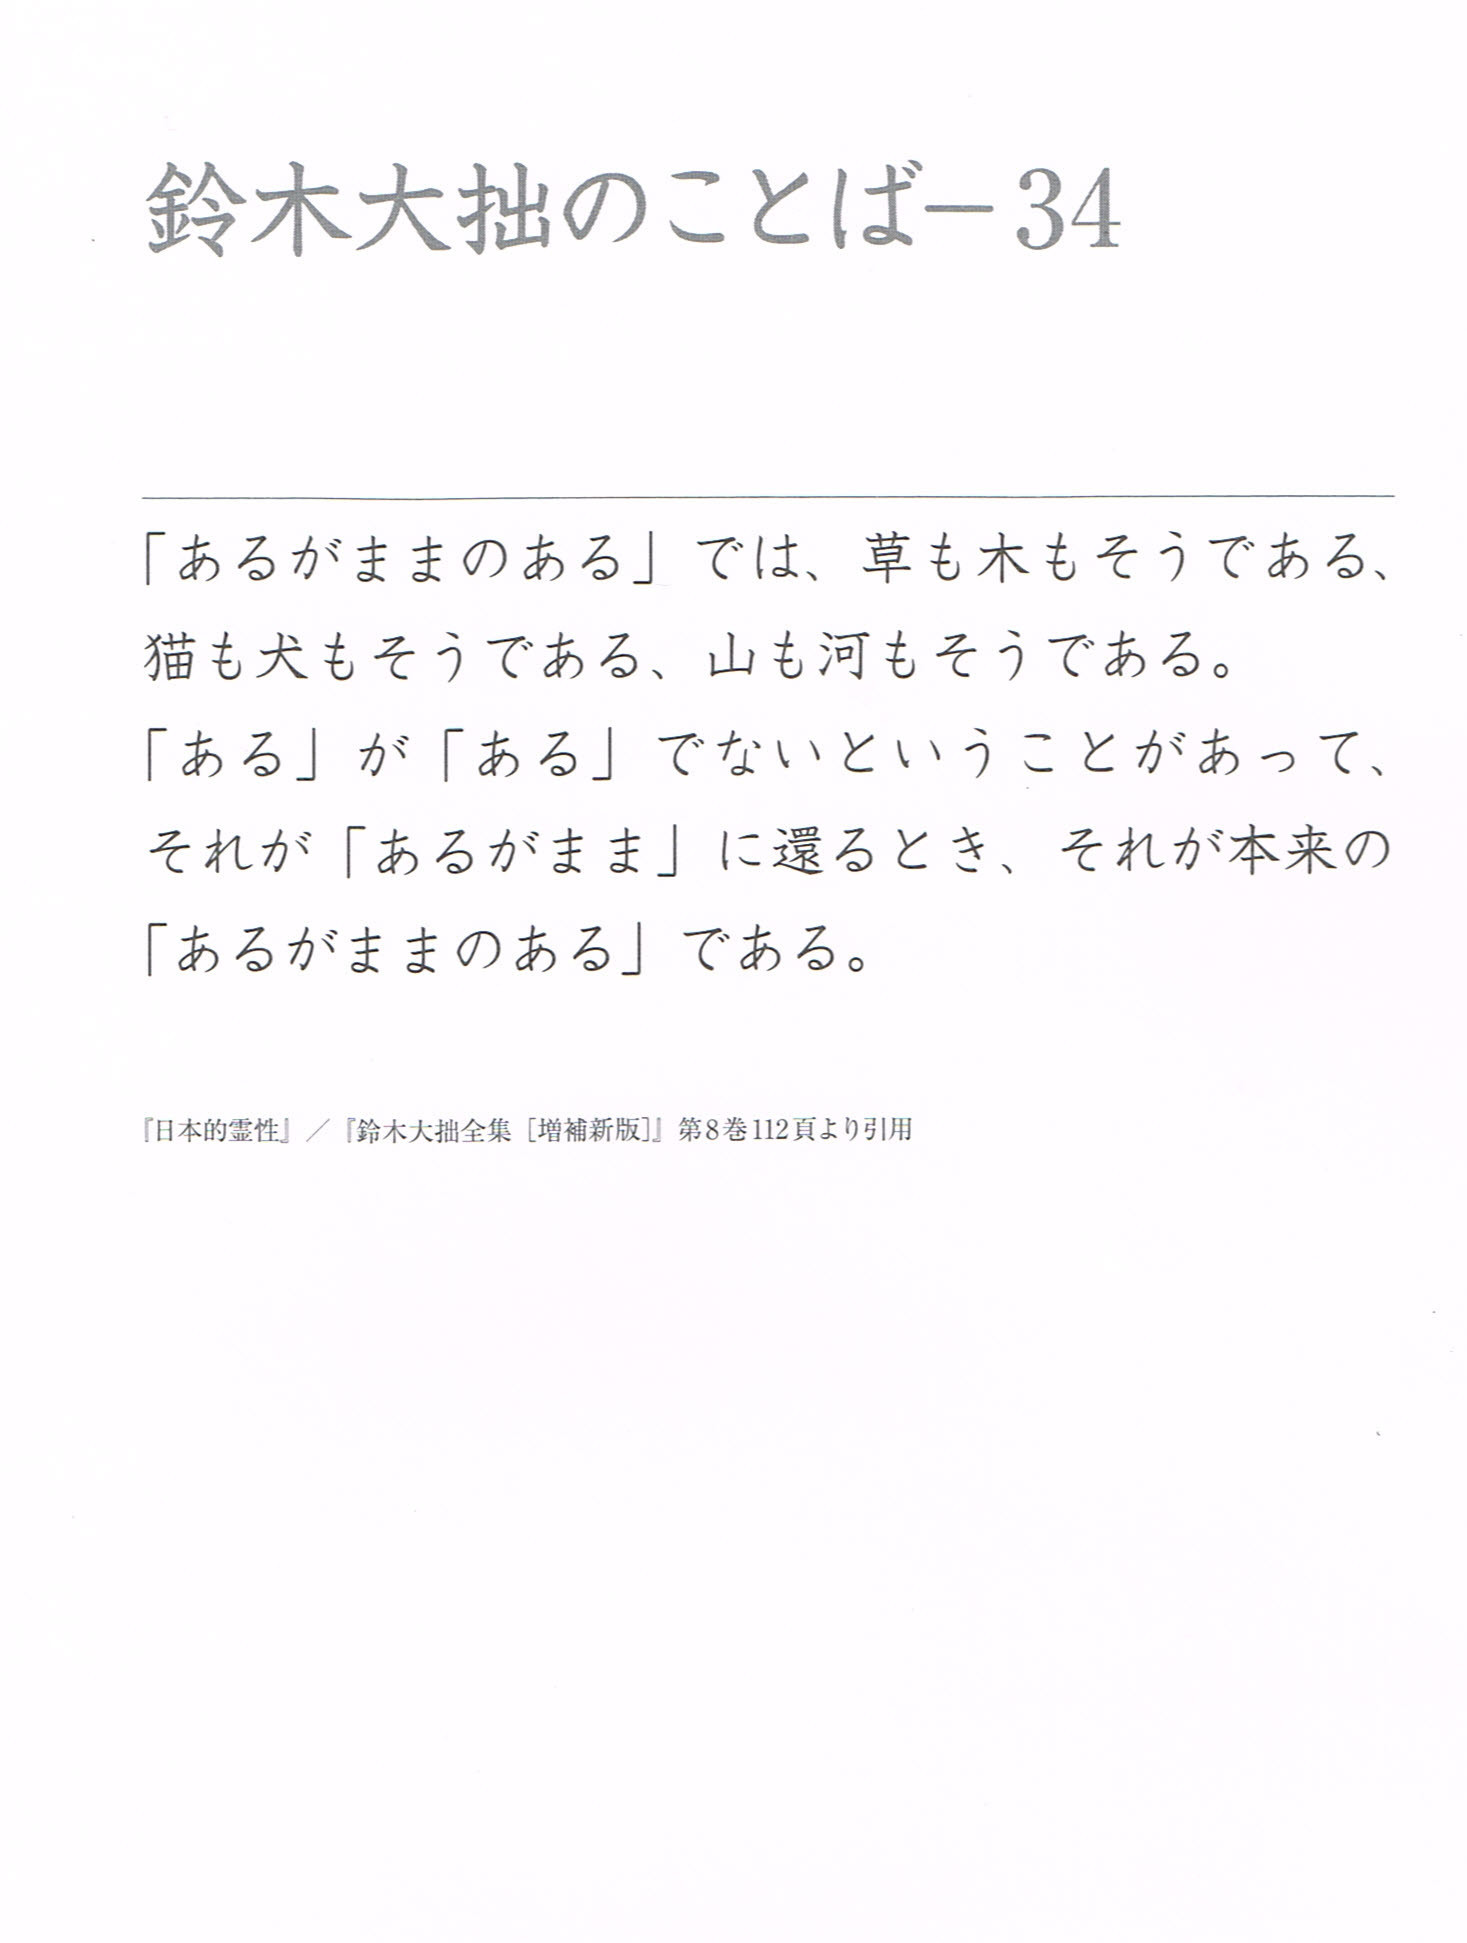 鈴木大拙のことば－34
「あるがままのある」では、草も木もそうである、
猫も犬もそうである、山も河もそうである。
「ある」が「ある」でないということがあって、
それが「あるがまま」に還るとき、それが本来の
「あるがままのある」である。
『日本的霊性』／『鈴木大拙全集［増補新版］』第8巻112頁より引用